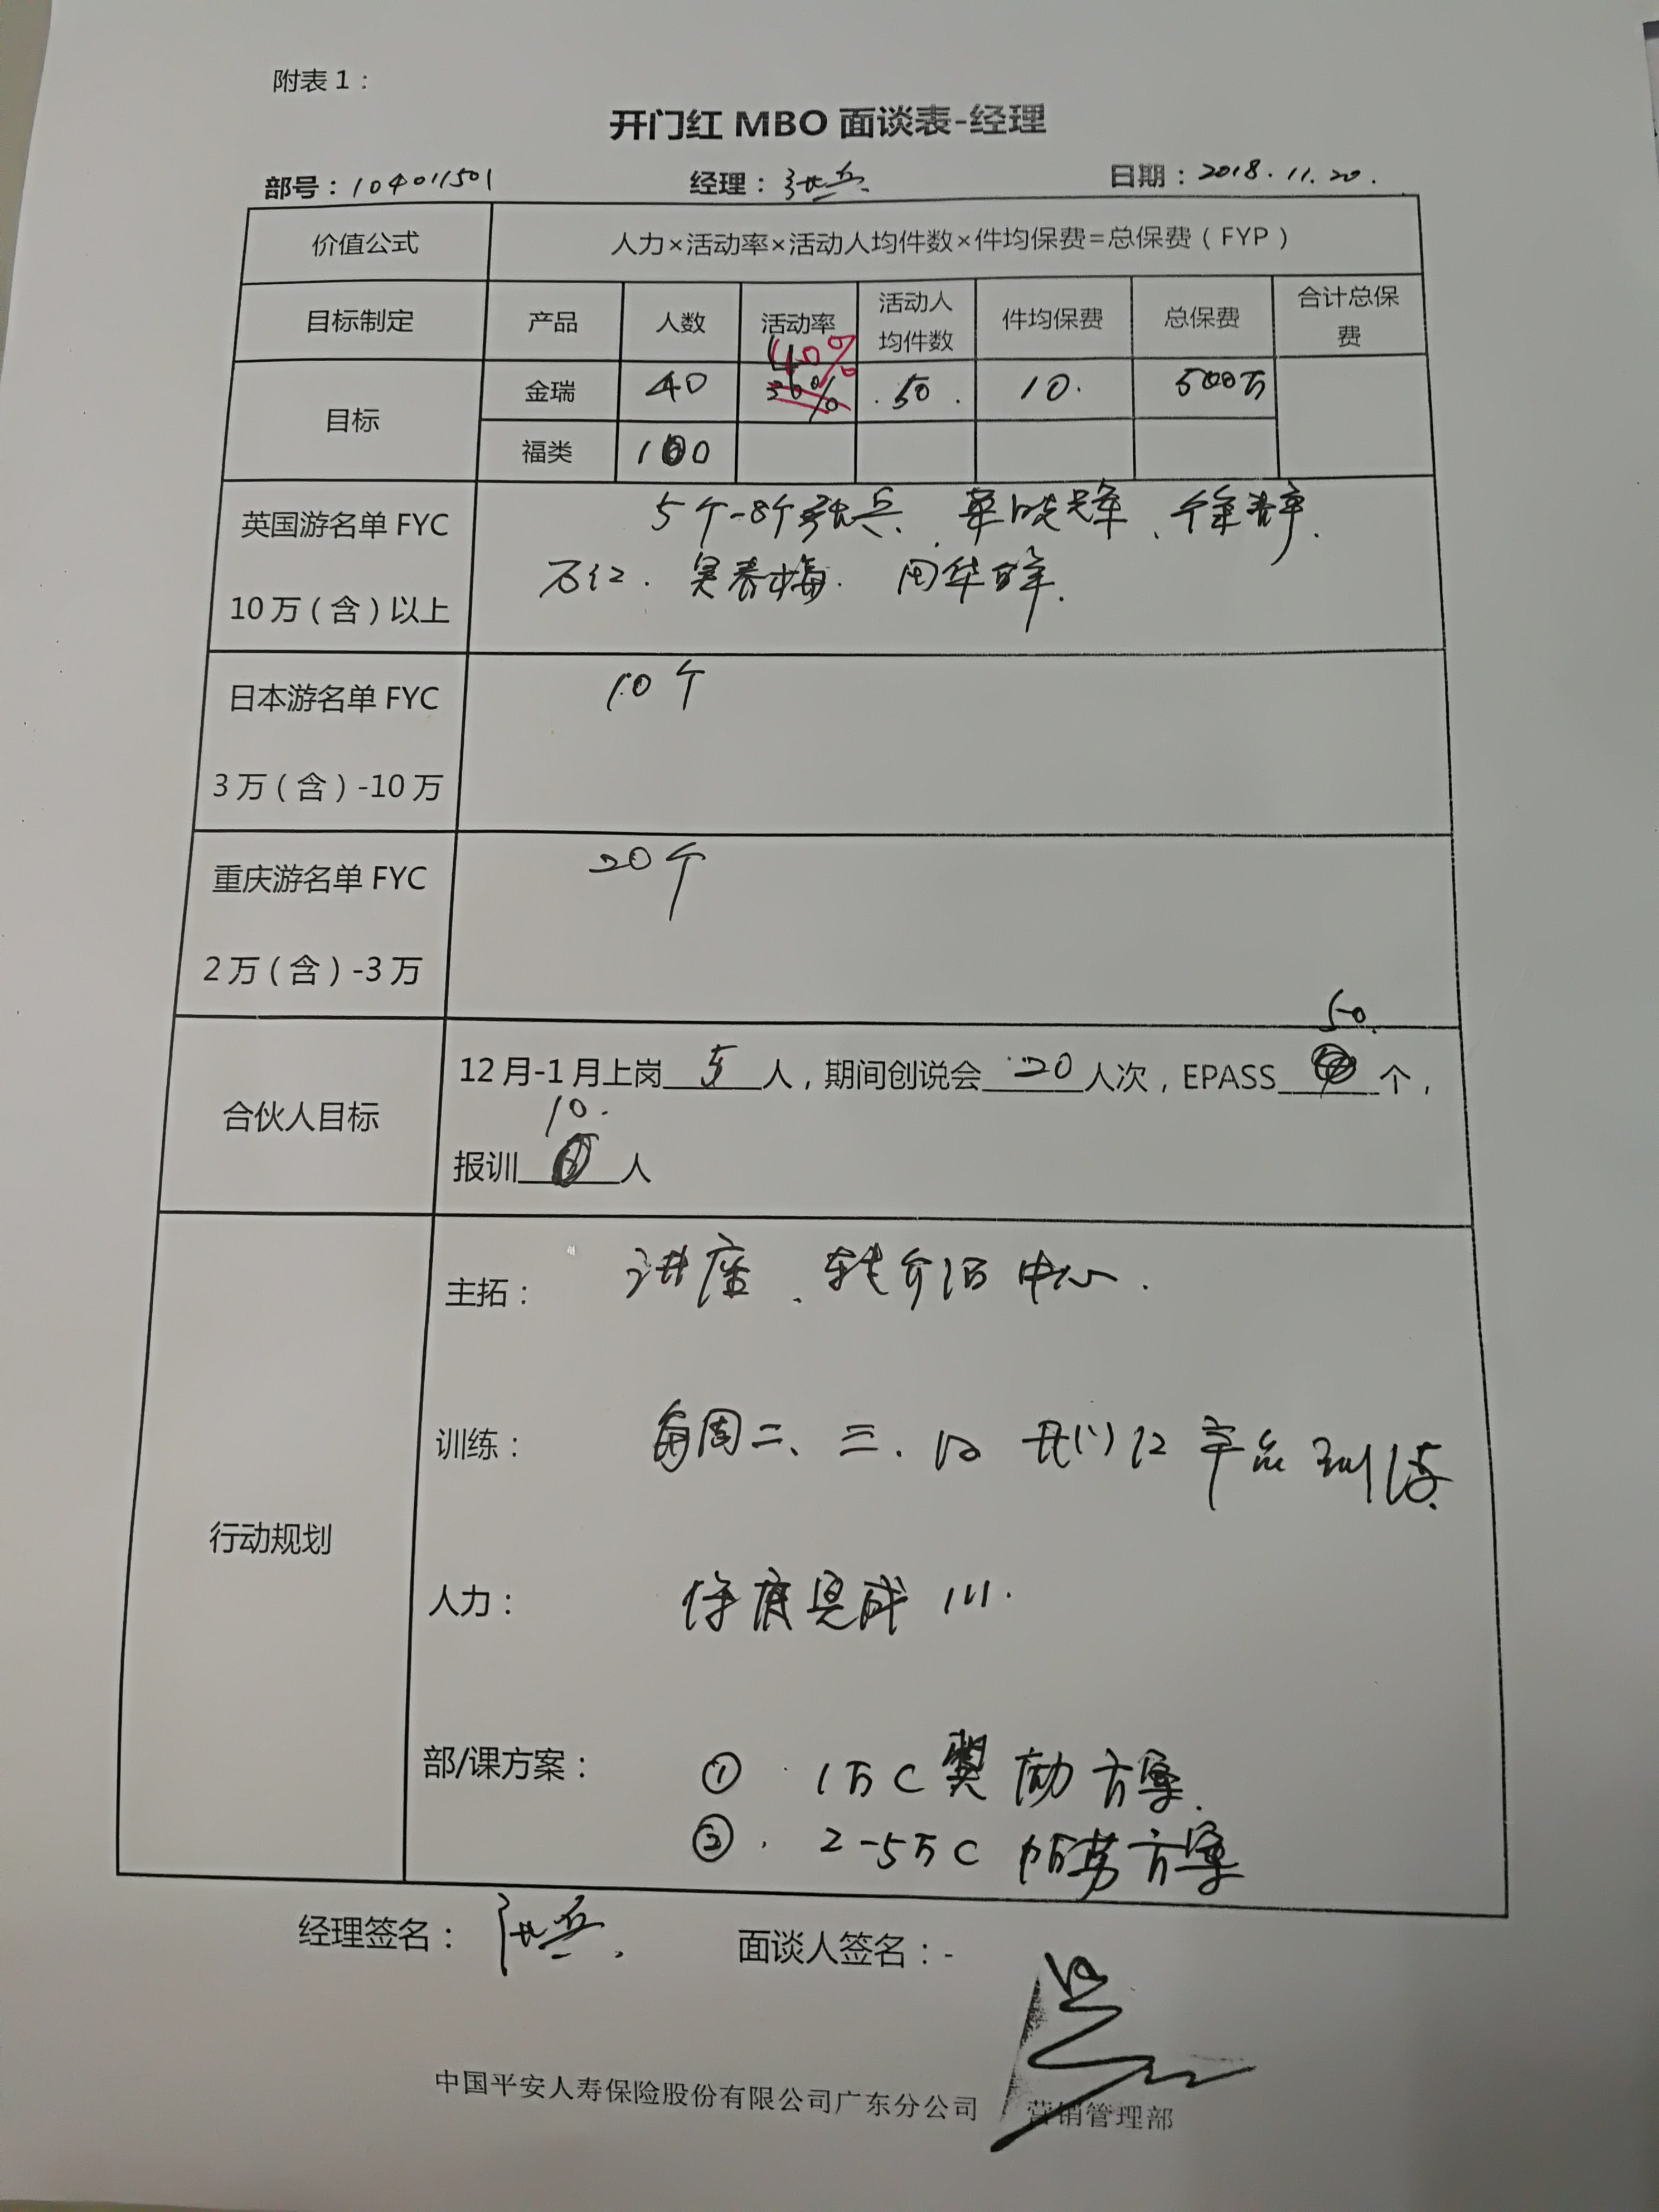 附表1：
开门红 MBO 面谈表-经理
部号：104011501 经理：张兵. 日期：2018.11.20.
价值公式 人力×活动率×活动人均件数×件均保费=总保费（FYP）
目标制定 产品 人数 活动率 活动人均件数 件均保费 总保费 合计总保费
40%
目标 金瑞 40 30% 50. 10. 500万
福类 100
英国游名单 FYC 5个-8个 张兵、 、
10万（含）以上 万红. 吴春梅.
日本游名单 FYC 10个
3万（含）-10万
重庆游名单 FYC 20个
2万（含）-3万
50.
合伙人目标 12月-1月上岗 5 人，期间创说会 20 人次，EPASS 个，
10.
报训 人
行动规划
主拓： 讲座、转介绍中心.
训练： 每周二、三. 开门红产品训练
人力： 保底完成 111.
部/课方案： ① 1万C奖励方案.
② 2-5万C 方案
经理签名：张兵. 面谈人签名：-
中国平安人寿保险股份有限公司广东分公司 营销管理部